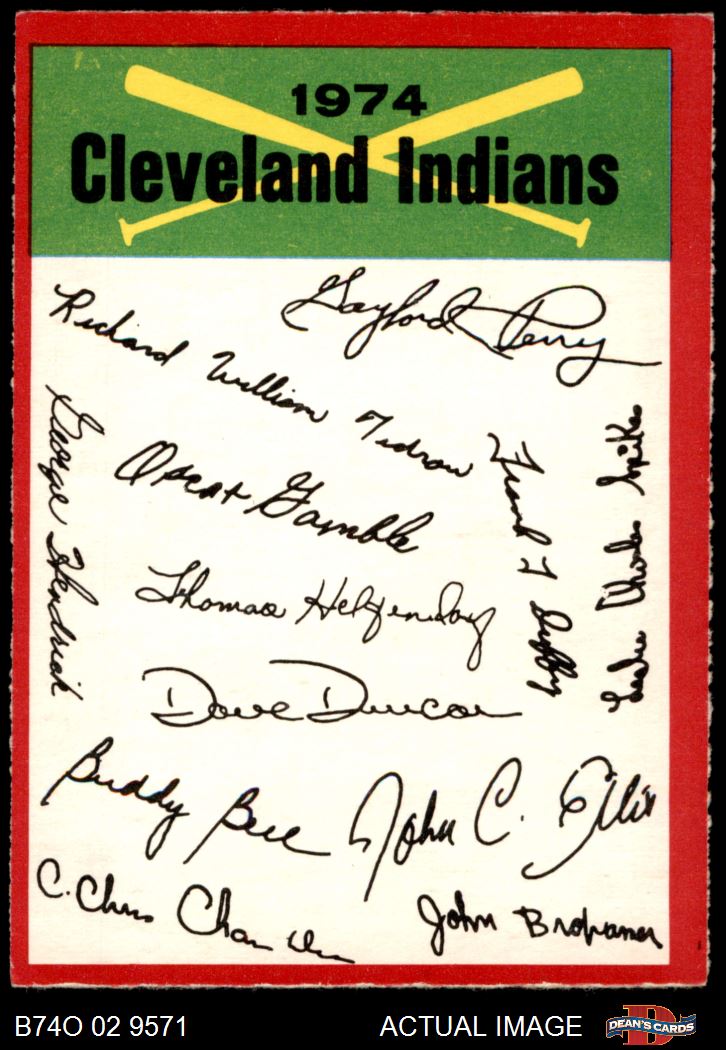 1974
Cleveland Indians
Gaylord Perry
Richard William Tidrow
George Hendrick
Oscar Gamble
Frank J. Duffy
Leslie Charles Spikes
Thomas Hilgendorf
Dave Duncan
Buddy Bell
John C. Ellis
C. Chris Chambliss
John Brohamer
B74O 02 9571
ACTUAL IMAGE
DEAN'S CARDS